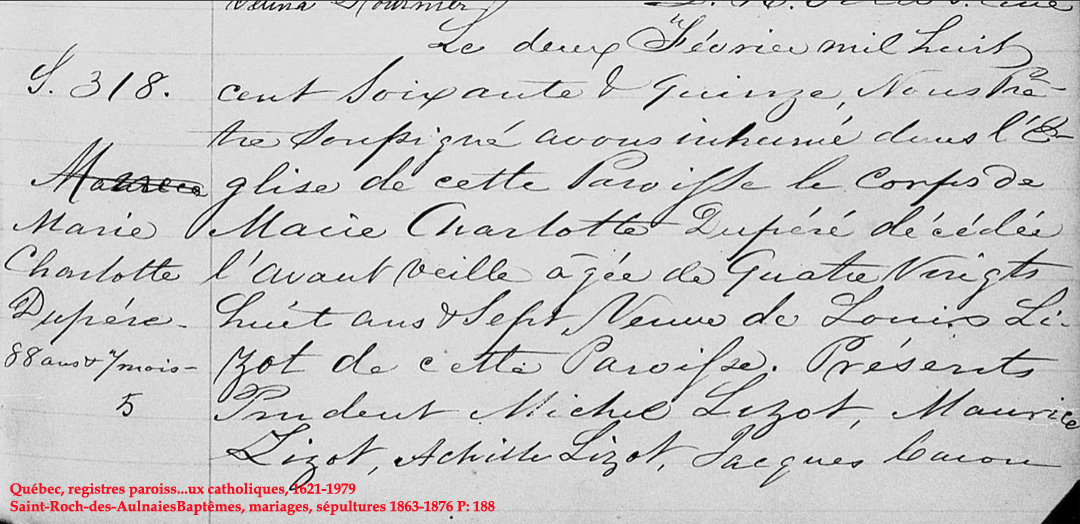 Le deux Février mil huit
S. 318.
cent Soixante & Quinze, Nous Prê-
tre Soussigné avons inhumé dans l'E-
glise de cette Paroisse le Corps de
Marie Charlotte Dupéré décédée
l'avant veille âgée de Quatre Vingts
huit ans & Sept, Veuve de Louis Li-
zot de cette Paroisse. Présents
Prudent Michel Lizot, Maurice
Lizot, Achille Lizot, Jacques Caron
Marie
Charlotte
Dupére-
88 ans & 7 mois-
5
Québec, registres paroiss...ux catholiques, 1621-1979
Saint-Roch-des-AulnaiesBaptêmes, mariages, sépultures 1863-1876 P: 188